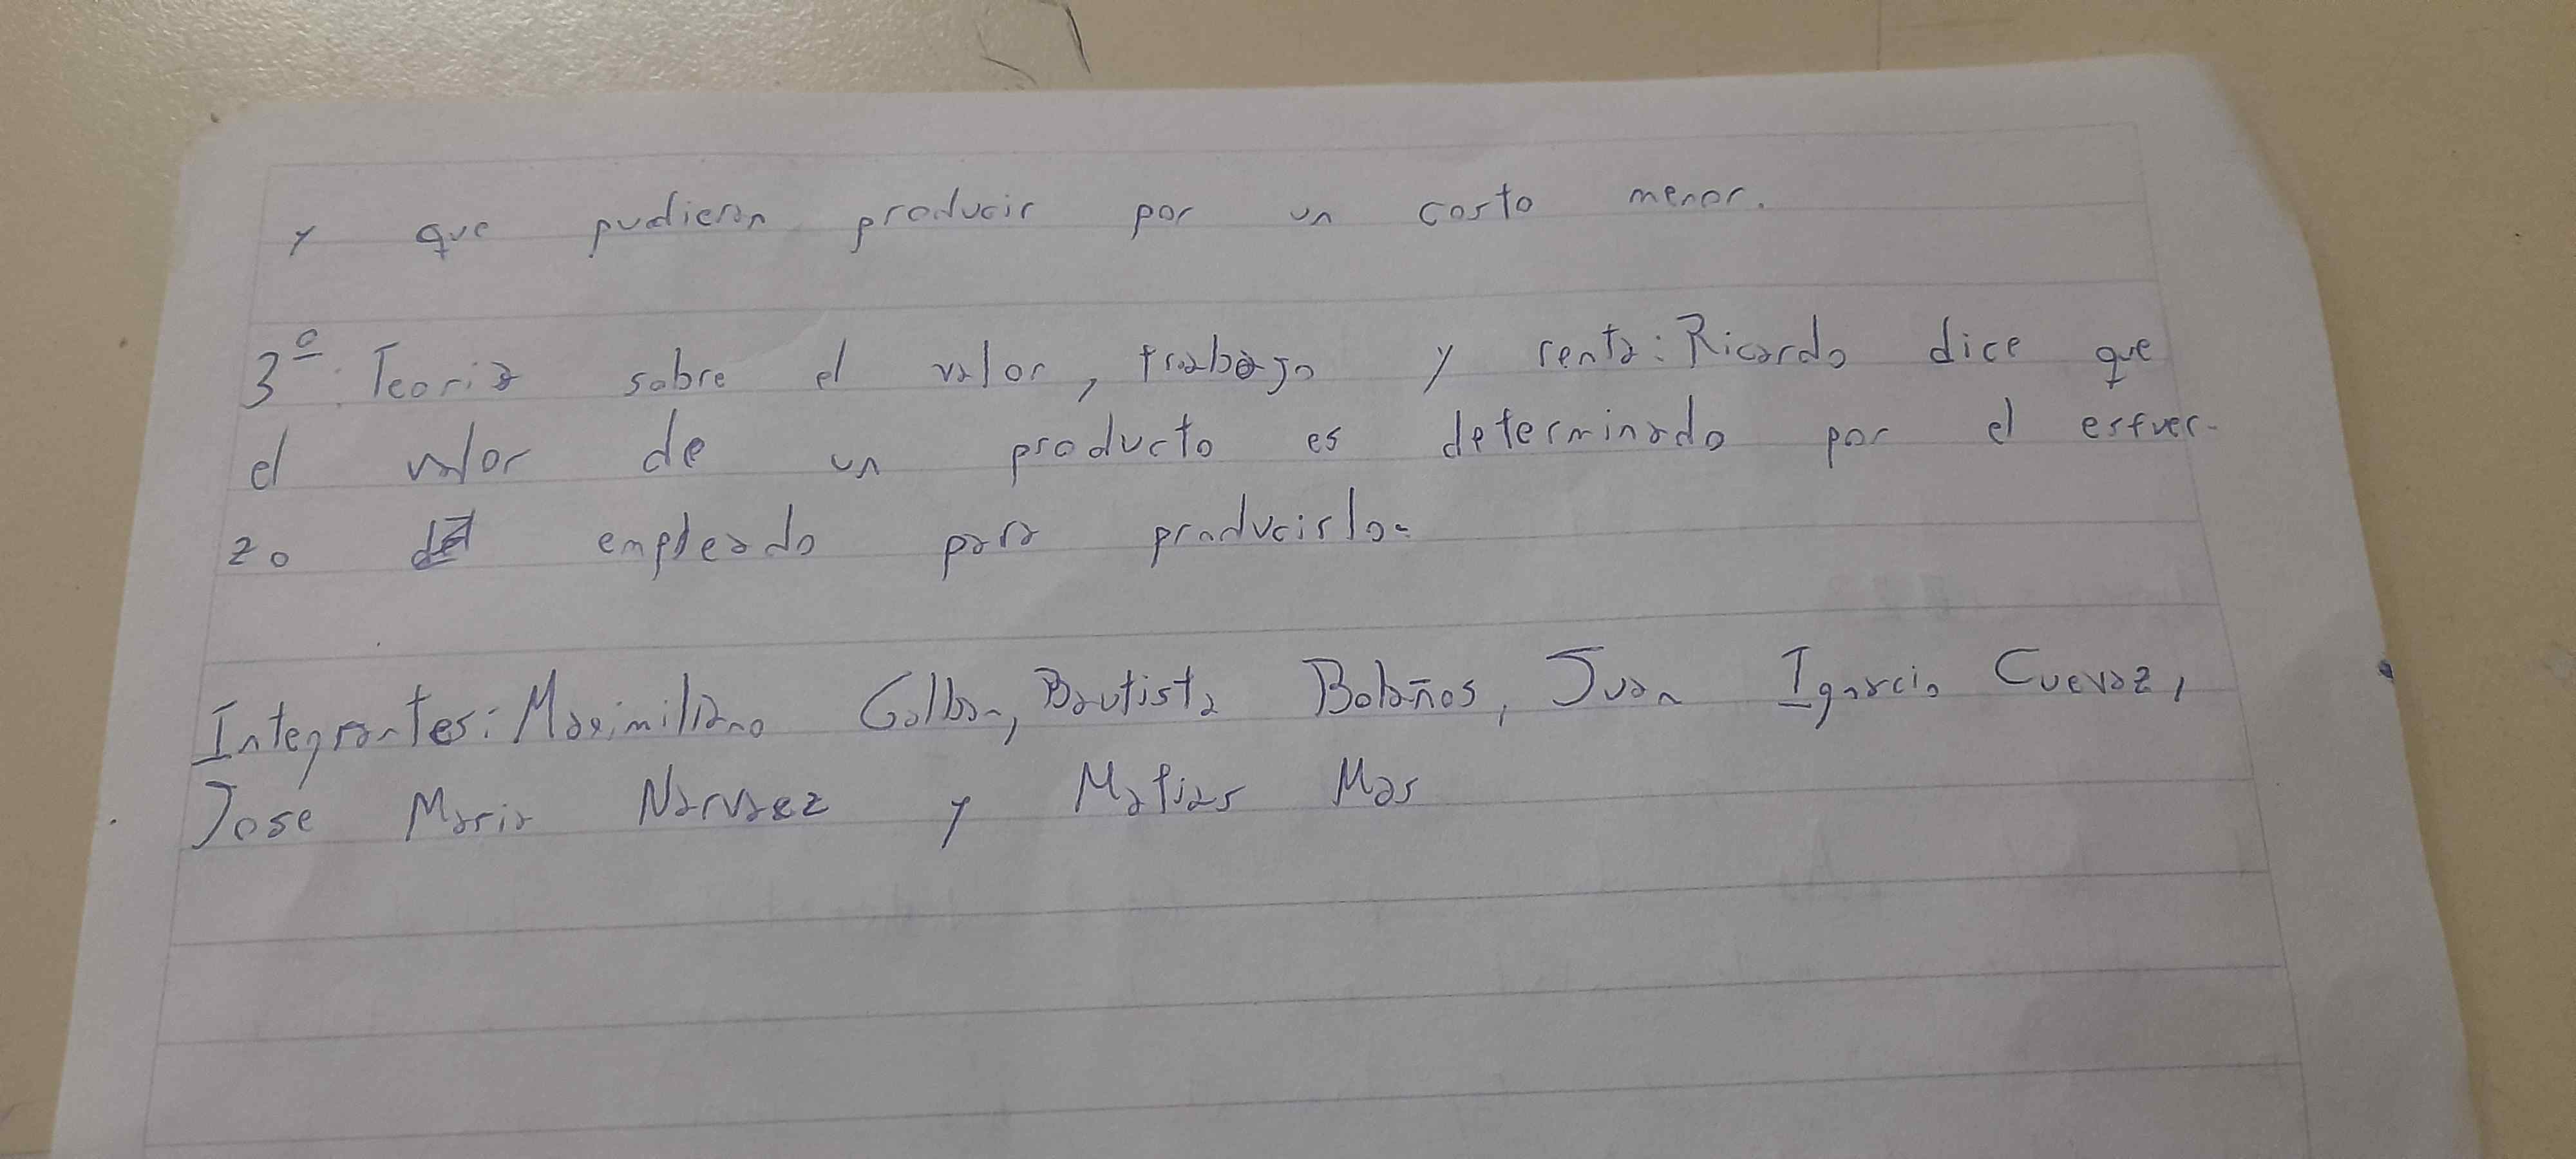 y que pudieran producir por un costo menor.
3º: Teoria sobre el valor, trabajo y renta: Ricardo dice que
el valor de un producto es determinado por el esfuer-
zo empleado para producirlo.
Integrantes: Maximiliano Galban, Bautista Bolaños, Juan Ignacio Cuevaz,
Jose Maria Narvaez y Matias Mas